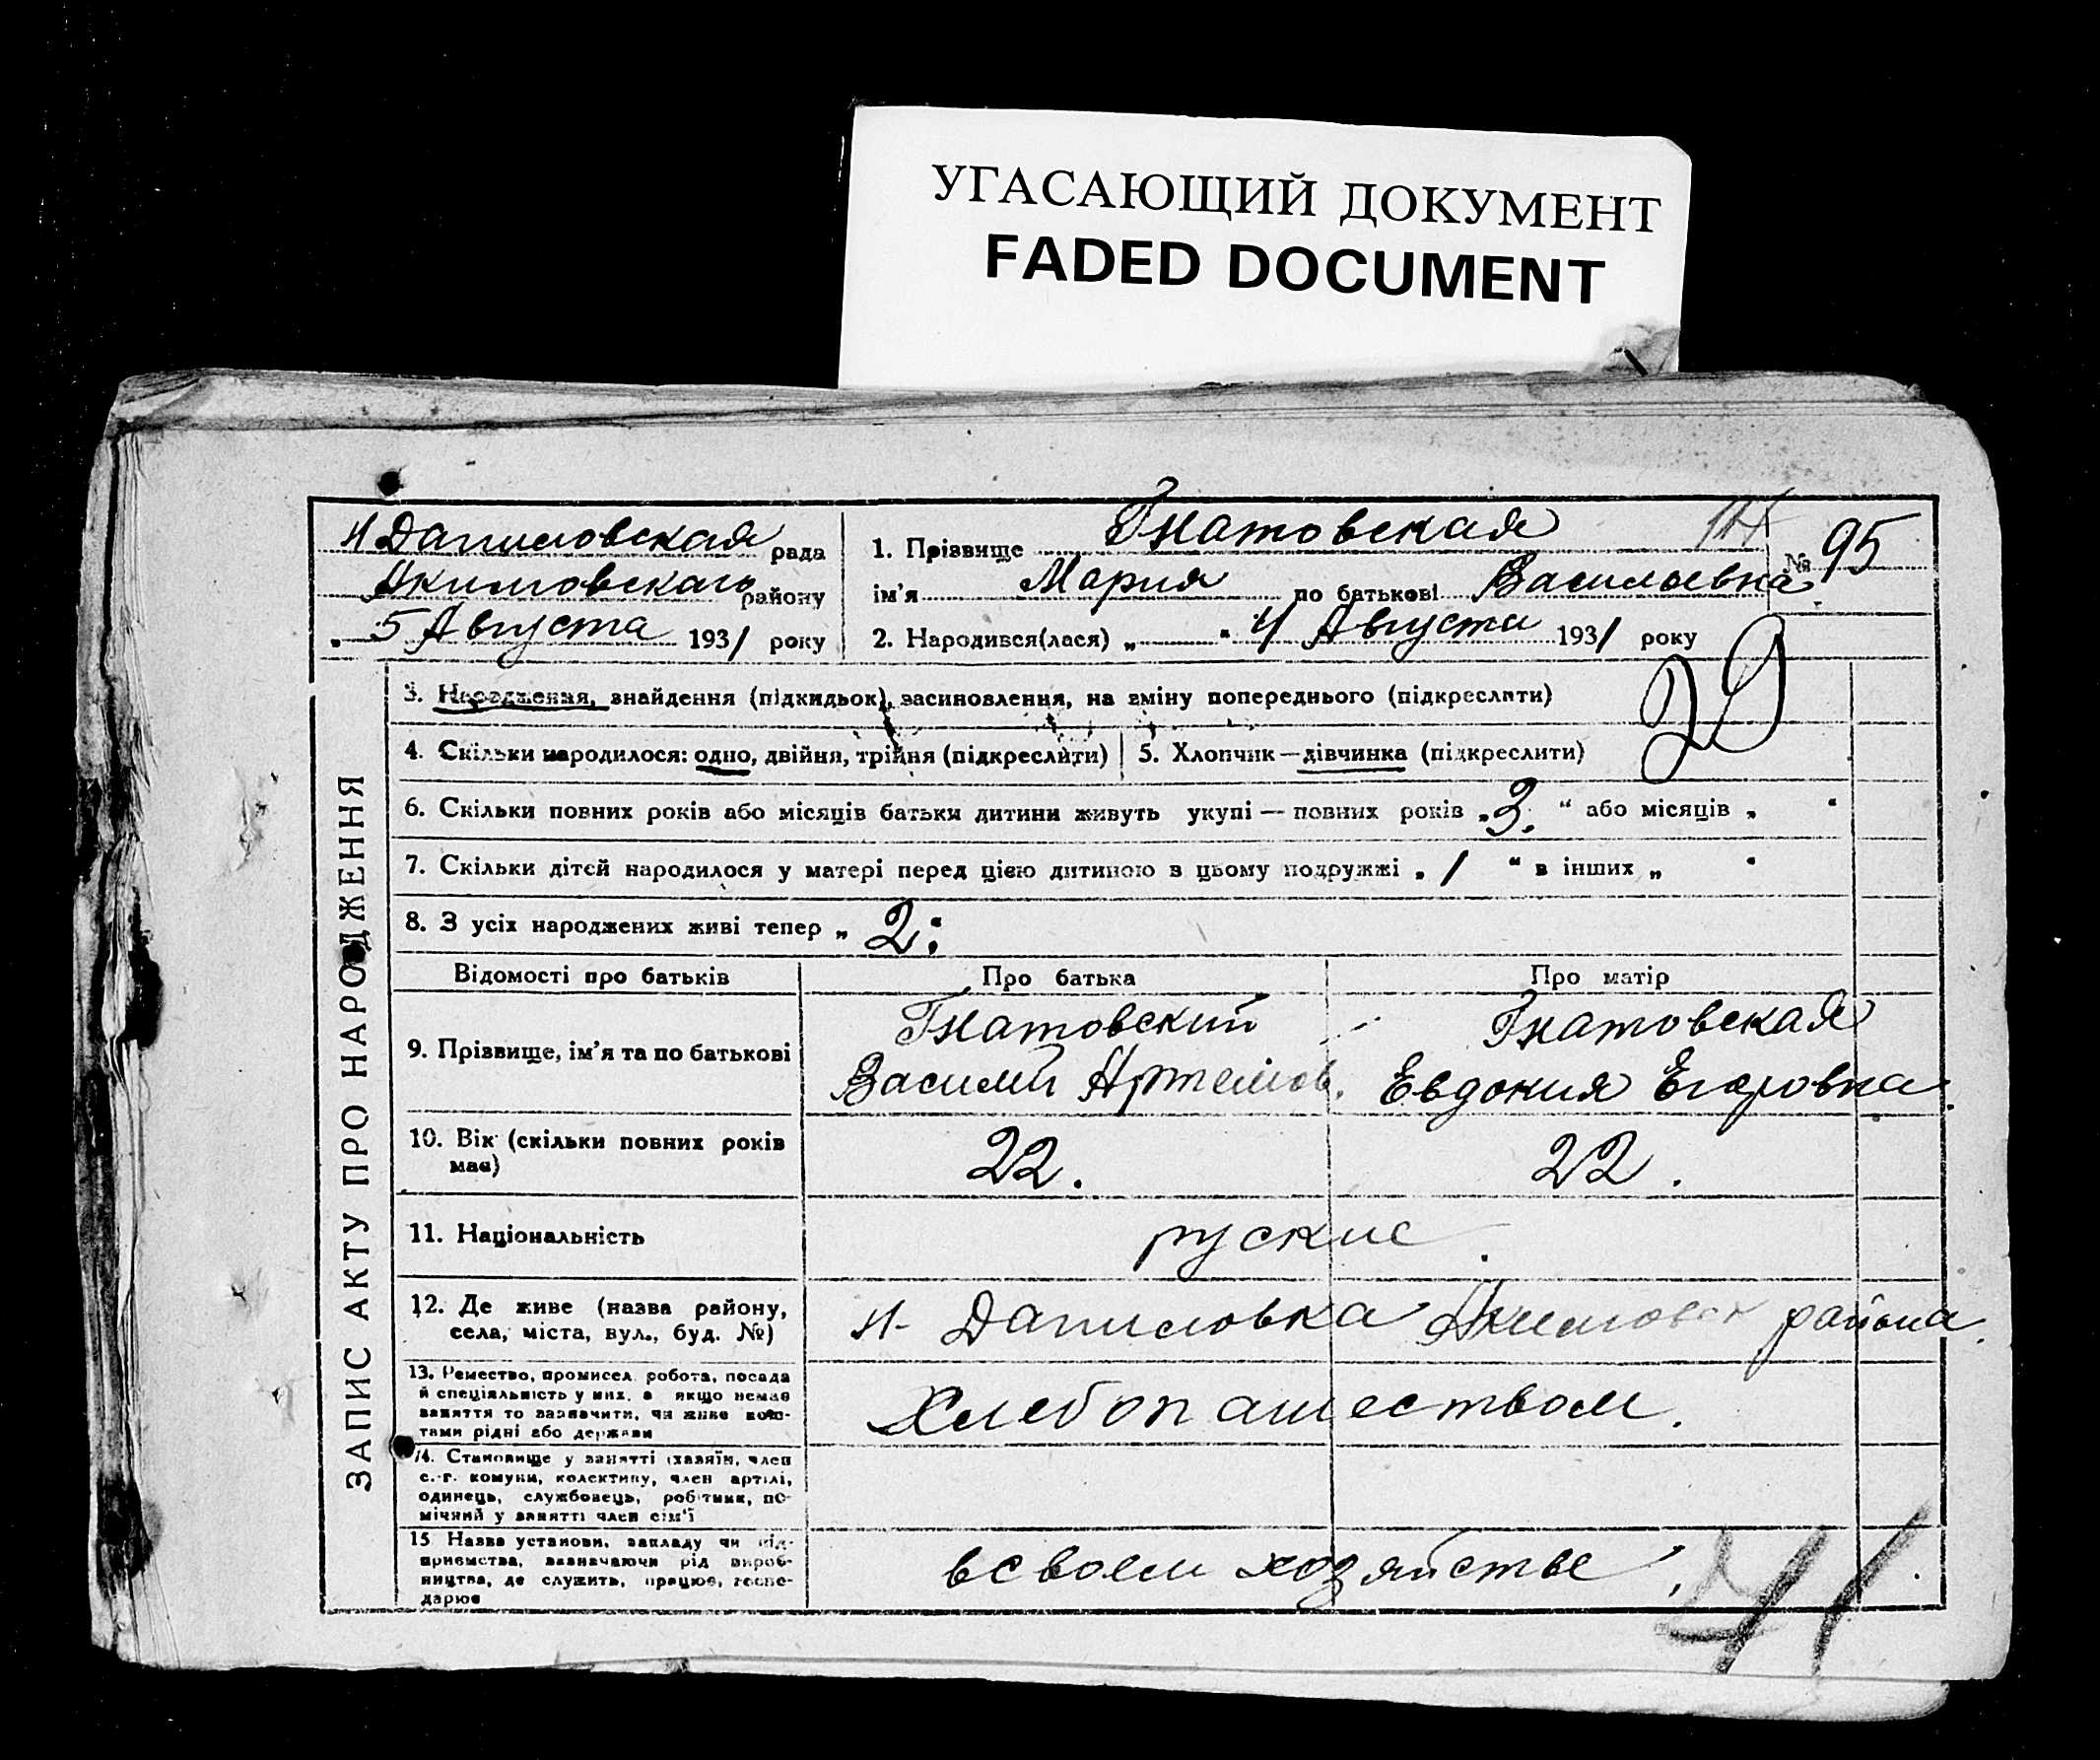 УГАСАЮЩИЙ ДОКУМЕНТ
FADED DOCUMENT
Н Даниловская рада
Акимовскаго району
„ 5 Августа 1931 року
1. Прізвище Гнатовская
№ 95
ім'я Мария по батькові Васильевна
2. Народився(лася) „ “ 4 Августа 1931 року
29
ЗАПИС АКТУ ПРО НАРОДЖЕННЯ
3. Народження, знайдення (підкидьок), засиновлення, на зміну попереднього (підкреслити)
4. Скільки народилося: одно, двійня, трійня (підкреслити)
5. Хлопчик — дівчинка (підкреслити)
6. Скільки повних років або місяців батьки дитини живуть укупі — повних років „ 3. “ або місяців „ “
7. Скільки дітей народилося у матері перед цією дитиною в цьому подружжі „ 1 “ в інших „ “
8. З усіх народжених живі тепер „ 2 “
Відомості про батьків
Про батька
Про матір
9. Прізвище, ім'я та по батькові
Гнатовский
Василий Артемов.
Гнатовская
Евдокия Егоровна.
10. Вік (скільки повних років
має)
22.
22.
11. Національність
руские.
12. Де живе (назва району,
села, міста, вул., буд. №)
Н- Даниловка Акимовск района.
13. Ремество, промисел, робота, посада
й спеціяльність у них, а якщо немає
заняття то зазначити, чи живе кош-
тами рідні або держави
Хлебопашеством.
14. Становище у занятті (хазяїн, член
с.-г. комуни, колективу, член артілі,
одинець, службовець, робітник, по-
мічний у занятті член сім'ї
15 Назва установи, закладу чи під-
приємства, зазначаючи рід вироб-
ництва, де служить, працює, госпо-
дарює
в своем хозяйстве.
41